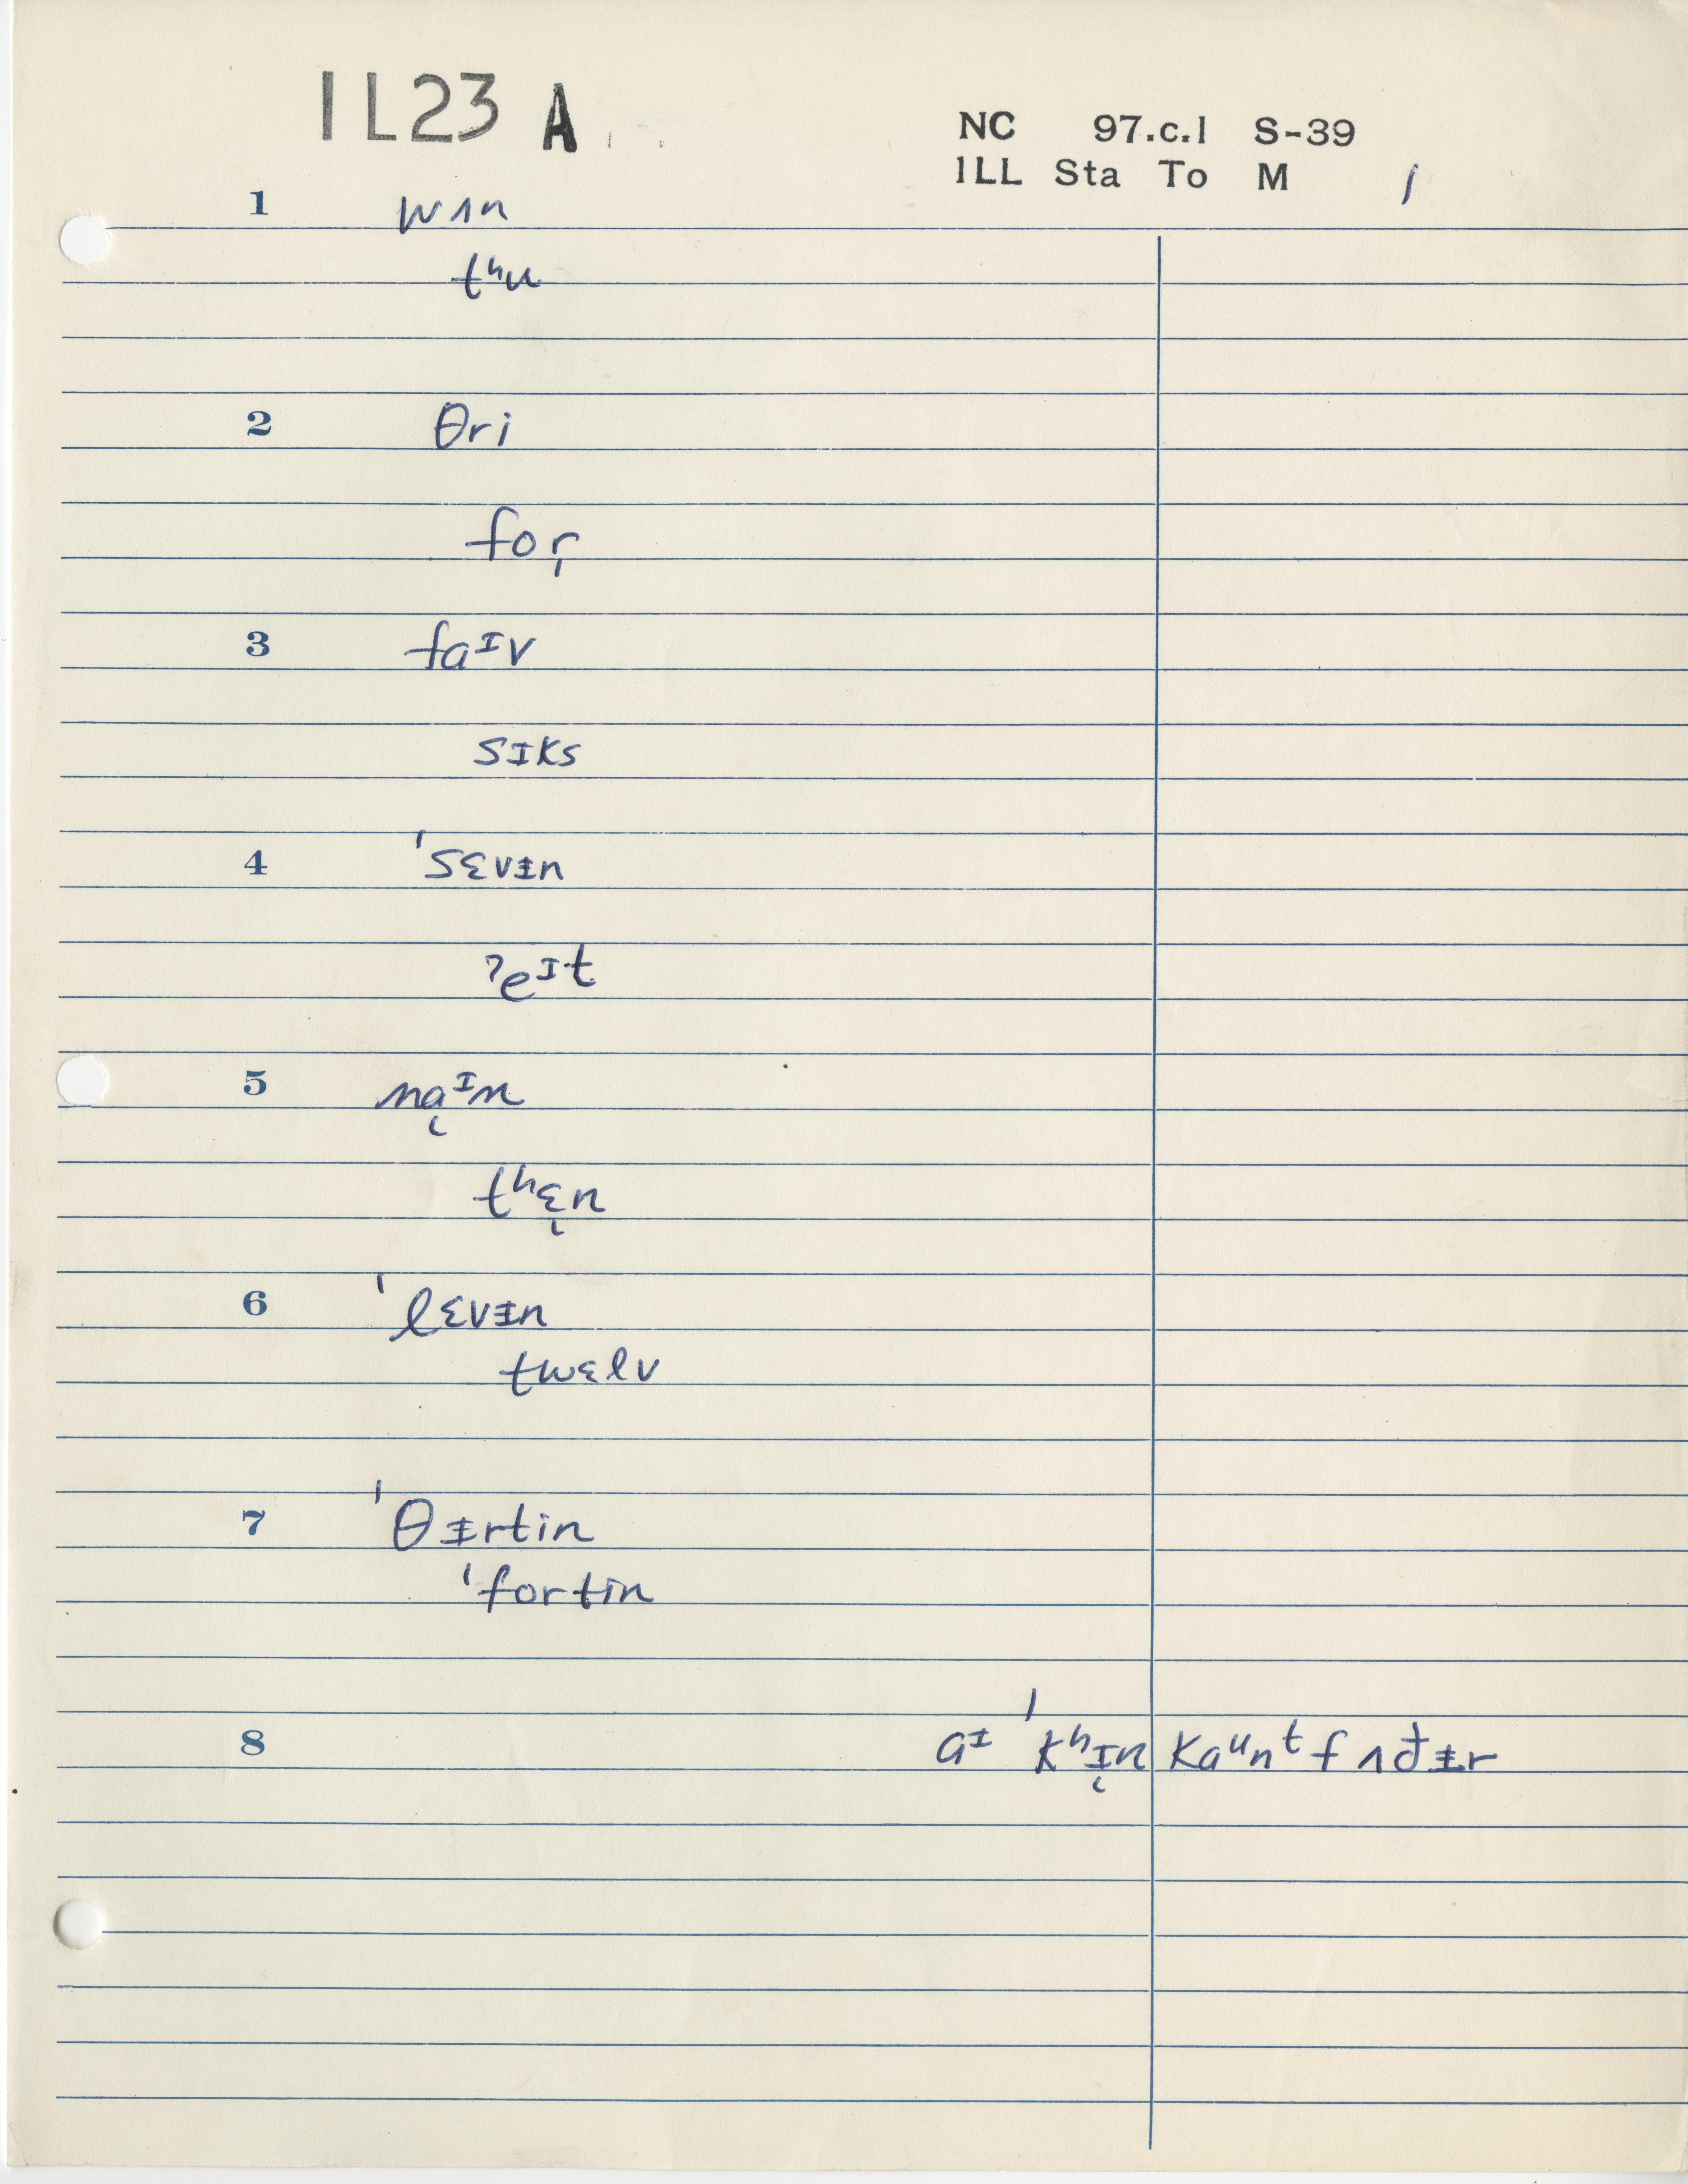 1L23 A
NC 97.c.1 S-39
1LL Sta To M 1
1 wʌn
tʰu
2 θri
for̩
3 faᶦv
sɪks
4 ˈsɛvᵻn
ˀeᶦt
5 na̜ᶦn
tʰɛ̜n
6 ˈlɛvᵻn
twɛlv
7 ˈθᵻrtin
ˈfortin
8 aᶦ ˈkʰɪ̜n kaᵘnᵗ fʌðᵻr